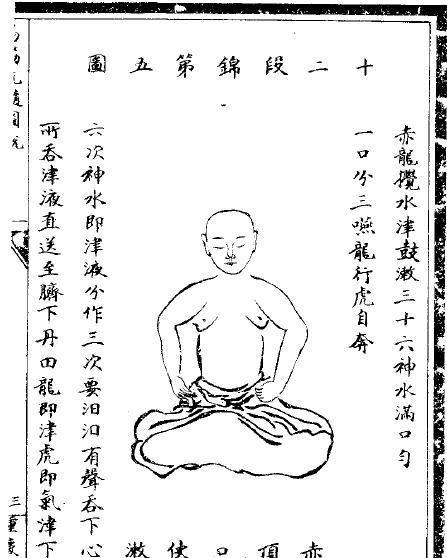 十二段錦第五圖
赤龍攪水津鼓漱三十六神水滿口勻
一口分三嚥龍行虎自奔
赤
頂
口
使
漱
六次神水即津液分作三次要汩汩有聲吞下心
所吞津液直送至臍下丹田龍即津虎即氣津下